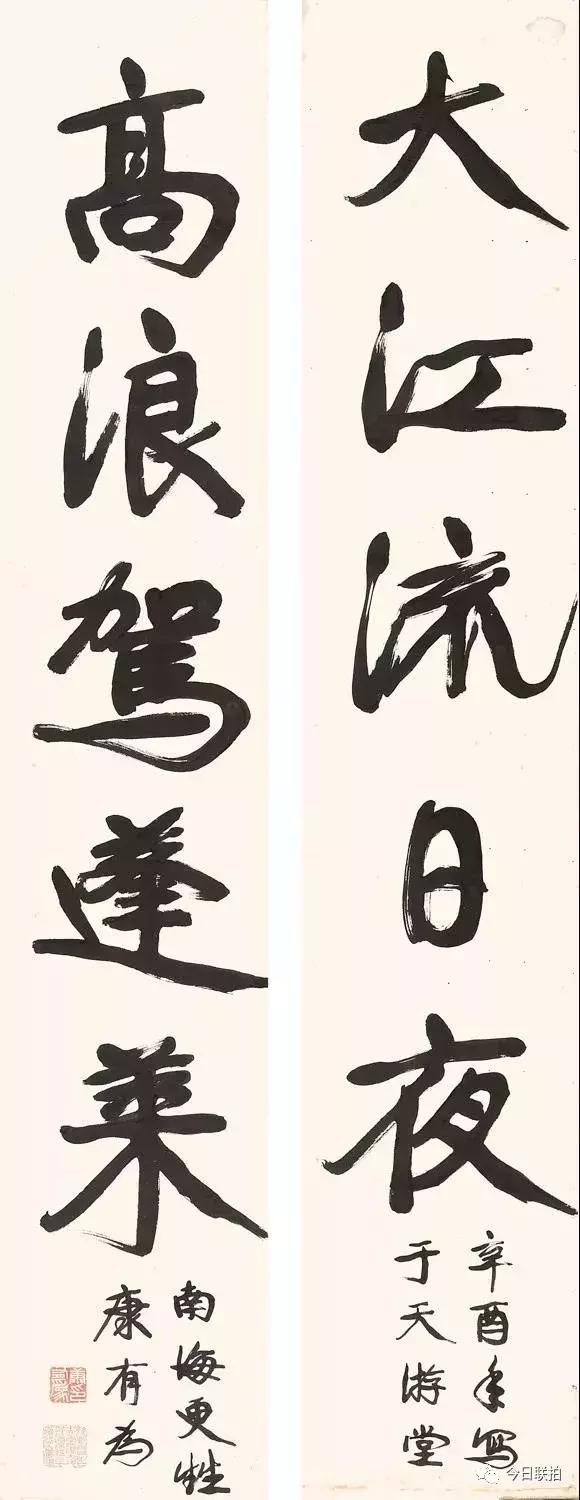 大江流日夜
辛酉年写
于天游堂
高浪駕蓬萊
南海更甡
康有为
今日联拍